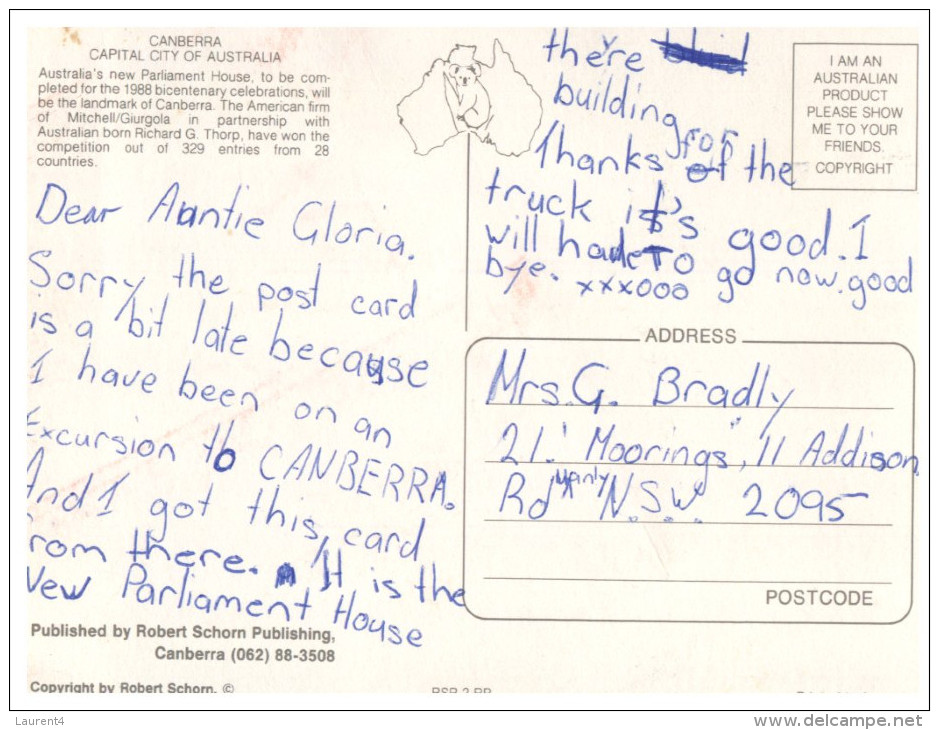 CANBERRA
CAPITAL CITY OF AUSTRALIA
Australia's new Parliament House, to be com-
pleted for the 1988 bicentenary celebrations, will
be the landmark of Canberra. The American firm
of Mitchell/Giurgola in partnership with
Australian born Richard G. Thorp, have won the
competition out of 329 entries from 28
countries.
Dear Auntie Gloria.
Sorry the post card
is a bit late because
I have been on an
Excursion to CANBERRA.
And I got this card
rom there. It is the
New Parliament House
there
building
Thanks for the
truck it's good. I
will have TO go now. good
bye. xxxooo
I AM AN
AUSTRALIAN
PRODUCT
PLEASE SHOW
ME TO YOUR
FRIENDS.
COPYRIGHT
ADDRESS
Mrs. G. Bradly
21. Moorings, 11 Addison
Rd Manly N.S.W. 2095
POSTCODE
Published by Robert Schorn Publishing,
Canberra (062) 88-3508
Copyright by Robert Schorn. ©
Laurent4
delcampe.net